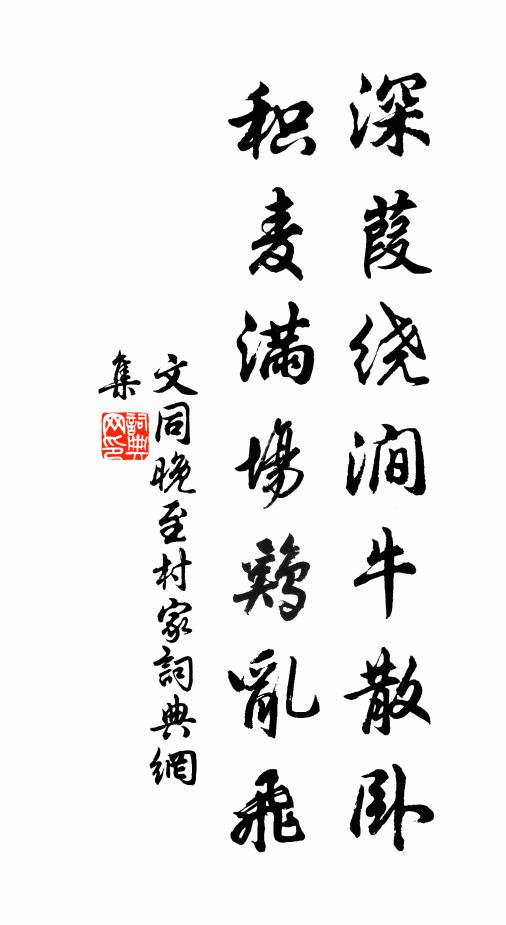 深葭绕涧牛散卧
积麦满場鷄亂飛
文同晚至村家詞典網
集
詞典網印